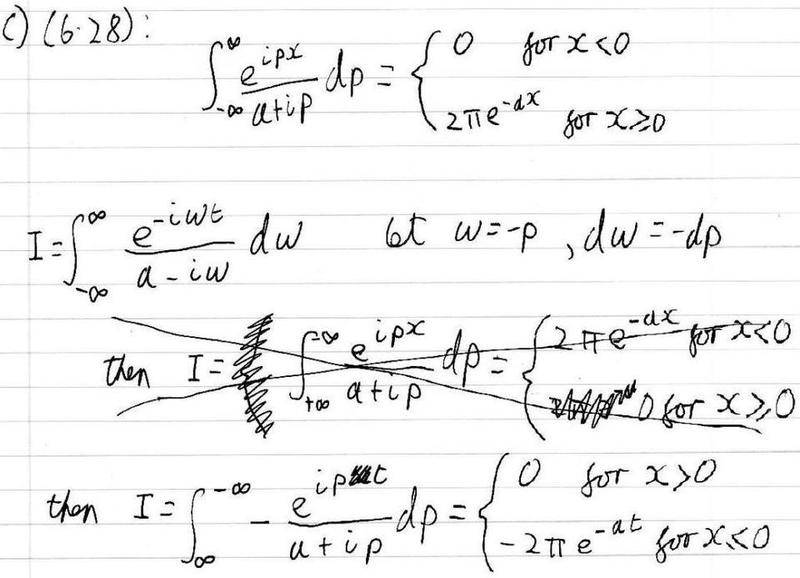 c) (6.28):
∫_{-∞}^{∞} e^{ipx}/(a+ip) dp = { 0 for x<0
2πe^{-ax} for x≥0
I = ∫_{-∞}^{∞} e^{-iwt}/(a-iw) dw let w=-p, dw=-dp
then I = ∫_{+∞}^{-∞} e^{ipx}/(a+ip) dp = { 2πe^{-ax} for x<0
0 for x≥0
then I = ∫_{∞}^{-∞} - e^{ipt}/(a+ip) dp = { 0 for x>0
-2πe^{-at} for x≤0